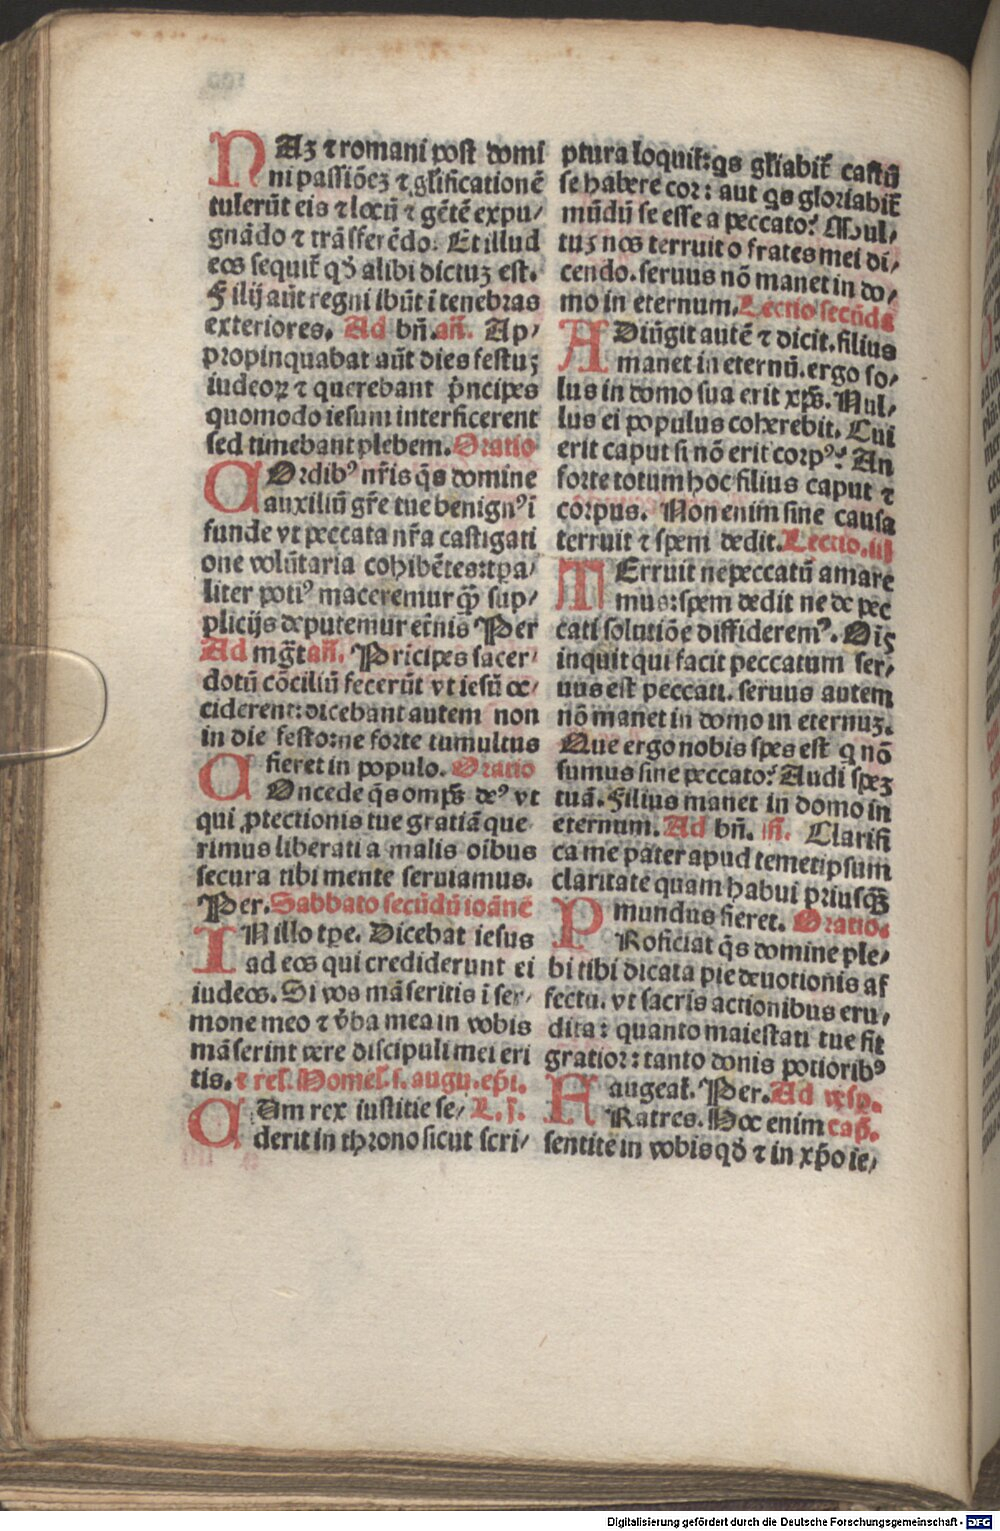 NAꝫ ⁊ romani post domi
ni passiõeꝫ ⁊ gl̃ificationẽ
tulerũt eis ⁊ locũ ⁊ gẽtẽ expu/
gnãdo ⁊ trãsferẽdo. Et illud
eos sequit̃ qd̕ alibi dictuꝫ est.
Filij aũt regni ibũt ĩ tenebras
exteriores. Ad bñ. añ. Ap/
propinquabat aũt dies festuꝫ
iudeoꝝ ⁊ querebant p̃ncipes
quomodo iesum interficerent
sed timebant plebem. Oratio
COrdibꝰ nr̃is q̃s domine
auxiliũ gr̃e tue benignꝰ ĩ
funde vt peccata nr̃a castigati
one volũtaria cohibẽtes: tꝑa/
liter potiꝰ maceremur q̃ꝫ sup/
plicijs deputemur et̃nis Per
Ad mg̃t añ. Prĩcipes sacer/
dotũ cõciliũ fecerũt vt iesũ oc/
ciderent: dicebant autem non
in die festo: ne forte tumultus
fieret in populo. Oratio
COncede q̃s omp̃s deꝰ vt
qui ꝓtectionis tue gratiã que
rimus liberati a malis oibus
secura tibi mente seruiamus.
Per. Sabbato secũdũ ioãnẽ
IN illo tꝑe. Dicebat iesus
ad eos qui crediderunt ei
iudeos. Si vos mãseritis ĩ ser/
mone meo ⁊ v̕ba mea in vobis
mãserint vere discipuli mei eri
tis. ⁊ rel̕. Homel̕. s. augu. ep̃i.
CUm rex iustitie se/ L. j.
derit in throno sicut scri/
ptura loquit̃: q̕s gl̃iabit̃ castũ
se habere cor: aut q̕s gloriabit̃
mũdũ se esse a peccato? Mul/
tuꝫ nos terruit o fratres mei di/
cendo. seruus nõ manet in do/
mo in eternum. Lectio secũda
ADiũgit autẽ ⁊ dicit. filius
manet in eternũ. ergo so/
lus in domo sua erit xp̃s. Nul/
lus ei populus coherebit. Cui
erit caput si nõ erit corpꝰ? An
forte totum hoc filius caput ⁊
corpus. Non enim sine causa
terruit ⁊ spem dedit. Lectio. iij
TErruit ne peccatũ amare
mus: spem dedit ne de pec
cati solutiõe diffideremꝰ. Oĩs
inquit qui facit peccatum ser/
uus est peccati. seruus autem
nõ manet in domo in eternuꝫ.
Que ergo nobis spes est q̕ nõ
sumus sine peccato? Audi speꝫ
tuã. Filius manet in domo in
eternum. Ad bñ. añ. Clarifi
ca me pater apud temetipsum
claritate quam habui priusq̃ꝫ
mundus fieret. Oratio.
PRoficiat q̃s domine ple/
bi tibi dicata pie deuotionis af
fectu. vt sacris actionibus eru/
dita: quanto maiestati tue fit
gratior: tanto donis potioribꝰ
augeat̃. Per. Ad vesp.
FRatres. Hoc enim cap̃.
sentite in vobis qd̕ ⁊ in xp̃o ie/
Digitalisierung gefördert durch die Deutsche Forschungsgemeinschaft - DFG